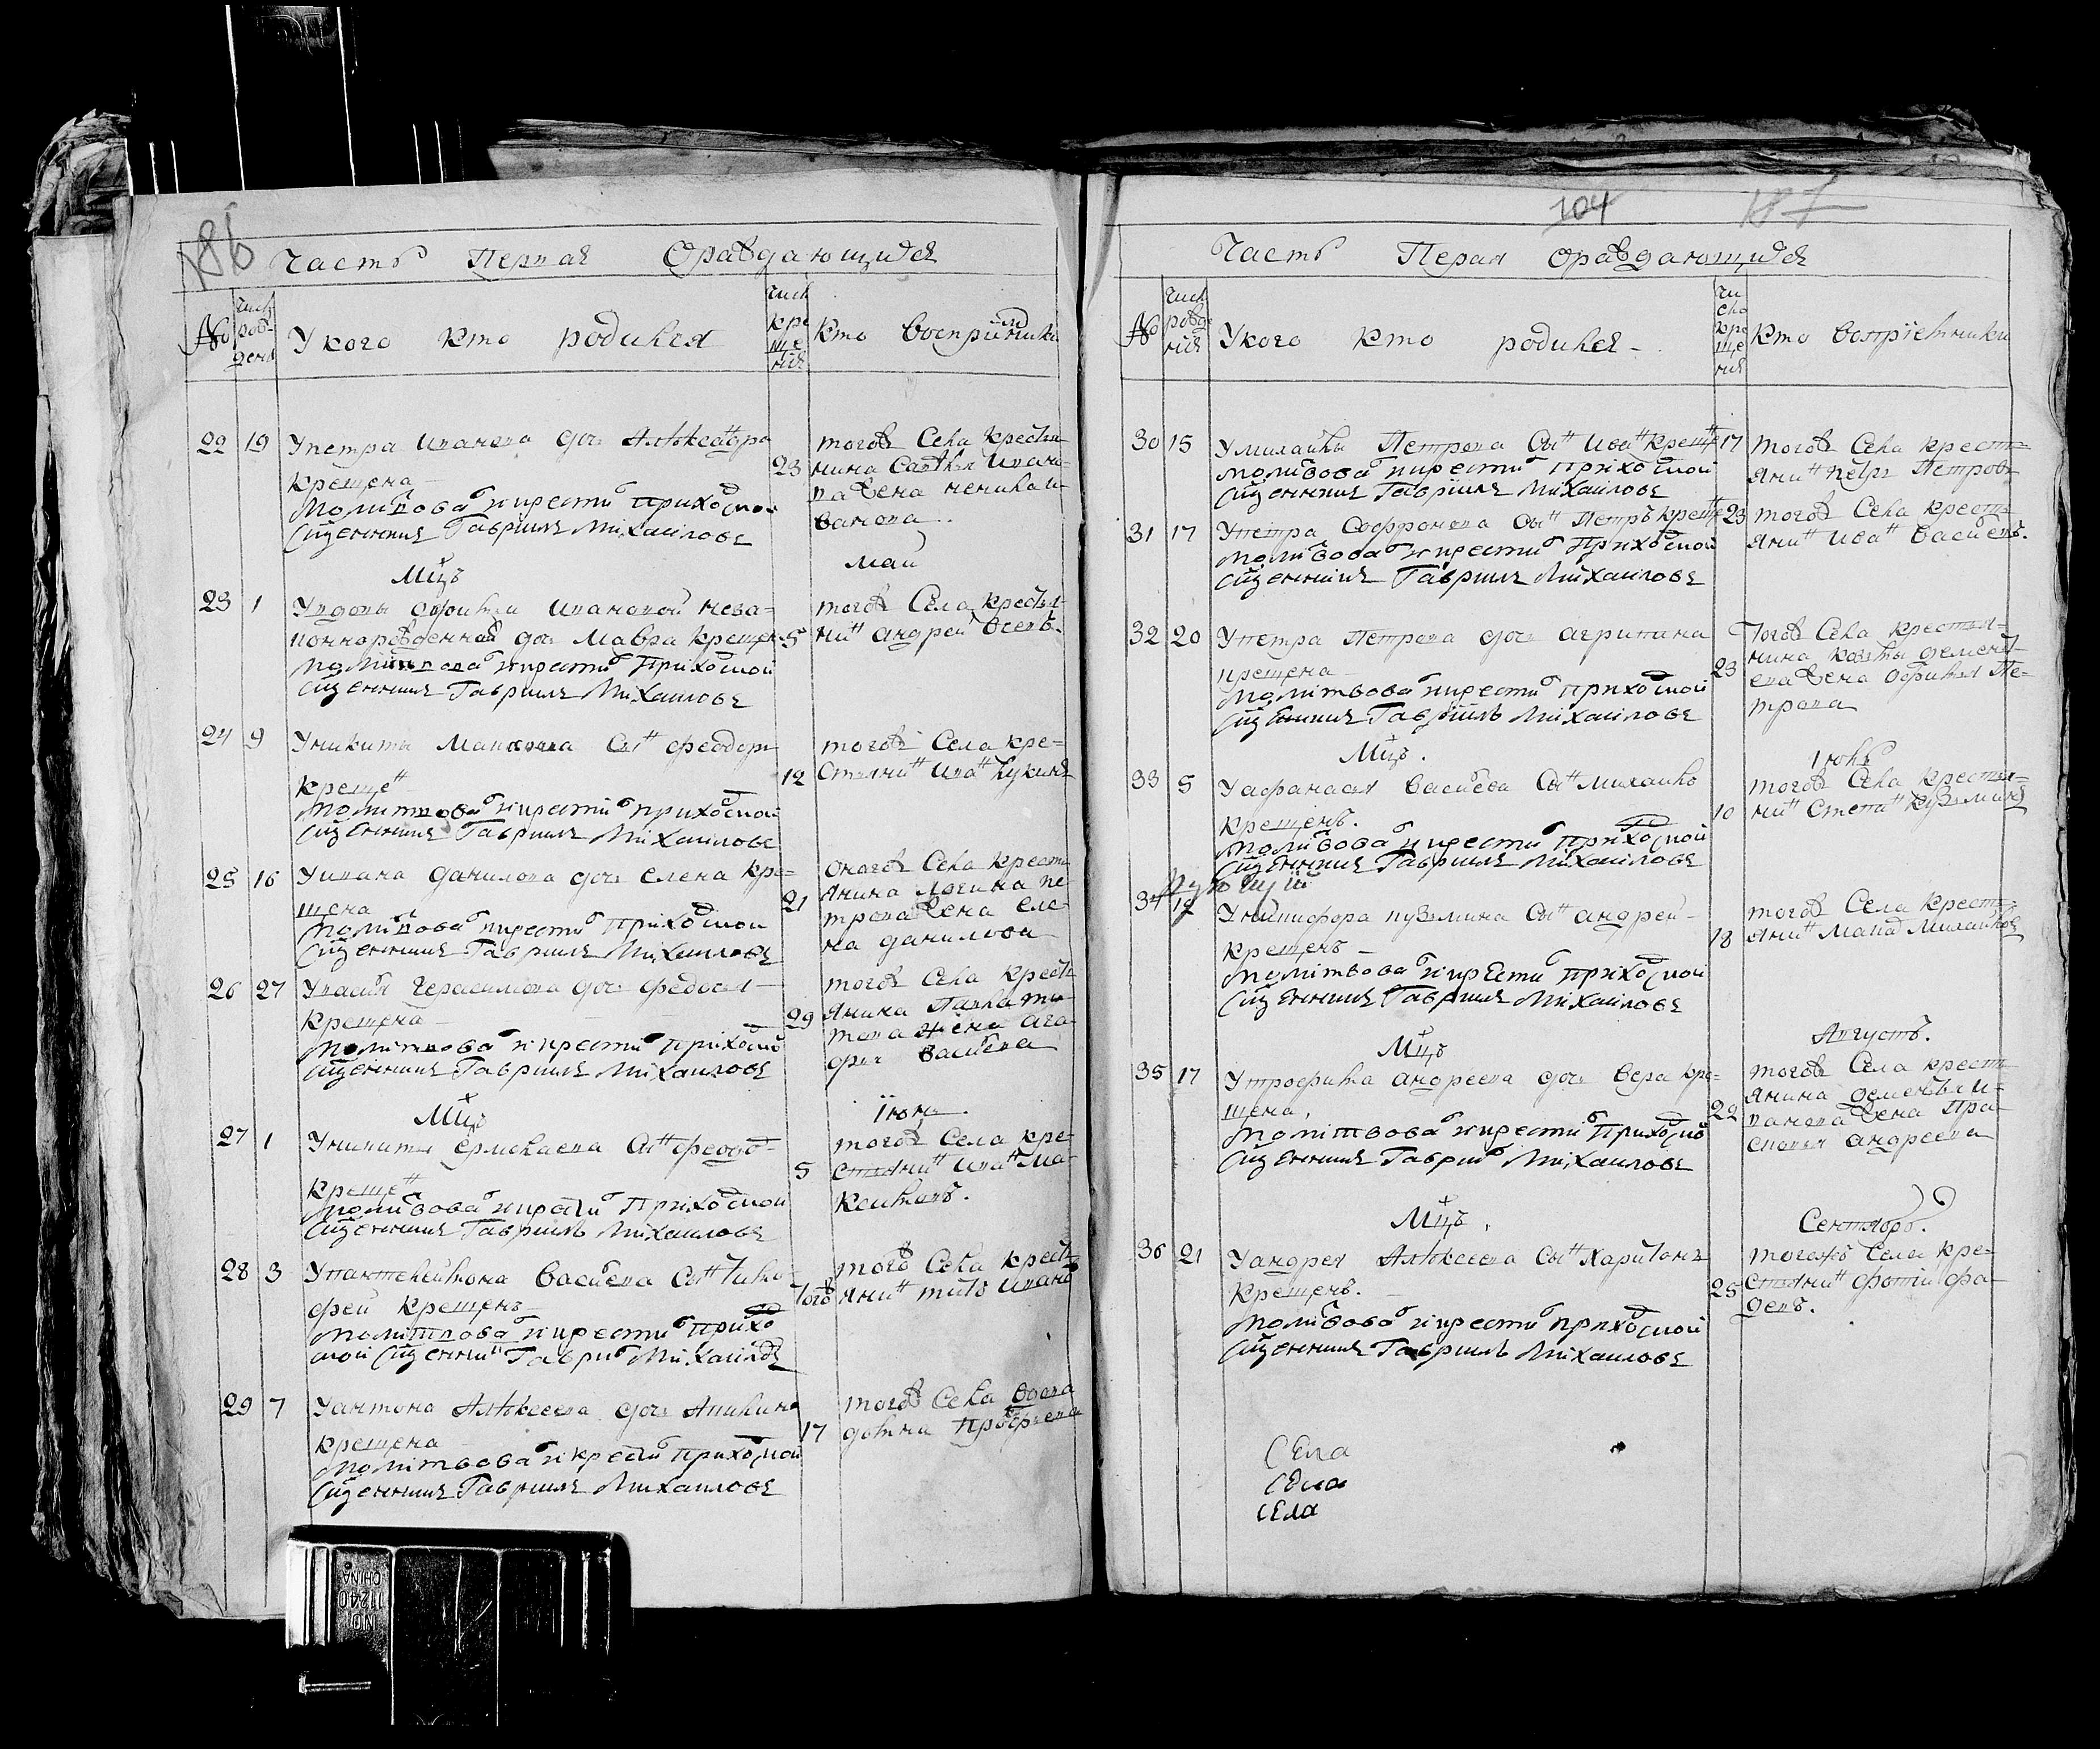 186
Часть Первая Ораждающихся
№
числ рождения
У кого кто родился
числ крещения
Кто восприимники
22 19 У петра иванова дочь Алѣксандра
крещена
Молитвова и крести приходской
Священник Гавриилъ Михаиловъ
23
тогож села крестья
нина
жена
ванова
Мцъ Май
23 1 У вдовы Ивановой неза=
коннорожденная дочь Мавра крещена
Молитвова и крести приходской
Священник Гавриилъ Михаиловъ
5
тогож села крестья
нин андрей
24 9 У никиты сын феодот
крещен
Молитвова и крести приходской
Священник Гавриилъ Михаиловъ
12
тогож села кре=
стянин иван Лукинъ
25 16 У ивана данилова дочь елена кре=
щена
Молитвова и крести приходской
Священник Гавриилъ Михаиловъ
21
оногож села кресть
янина Логина пе
трова жена еле
на данилова
26 27 Герасимова дочь федосья
крещена
Молитвова и крести приходской
Священник Гавриилъ Михаиловъ
29
тогож села кресть
янина Павла ти
това жена ага
фья васильева
Мцъ Iюнь
27 1 У никиты ермолаева сын феодо
крещен
Молитвова и крести приходской
Священник Гавриилъ Михаиловъ
5
тогож села кре
стянин иван
28 3 У пантелеймона васильева сын тимо
фей крещенъ
Молитвова и крести прихо
ской Священник Гаврил Михаиловъ
того
того села кресть
янин титъ иванов
29 7 У антона Алѣксеева дочь Акилина
крещена
Молитвова и крести приходской
Священник Гавриилъ Михаиловъ
17
тогож села вдова
104 187
Часть Перая Ораждающихся
№
числ рождения
У кого кто родился
число крещения
Кто восприемники
30 15 У михаилы Петрова сын иван крещен 17
Молитвова и крести приходской
Священник Гавриилъ Михаиловъ
тогож села кресть=
янин петръ Петровъ
31 17 У петра Софронова сын Петръ крещен 23
Молитвова и крести приходской
Священник Гавриилъ Михаиловъ
тогож села кресть
янин иван васильевъ.
32 20 У петра Петрова дочь агрипина
крещена
Молитвова и крести приходской
Священник Гавриилъ Михаиловъ
23
Тогож села крестья=
нина козмы дементь
ева жена Пе=
трова
Мцъ. Iюль
33 5 У афанасья васильева сын михаило
крещенъ.
Молитвова и крести приходской
Священник Гавриилъ Михаиловъ
10
тогож села крестья=
нин степан кузьминъ
34 12 У никифора кузьмина сын андрей
крещенъ
Молитвова и крести приходской
Священник Гавриилъ Михаиловъ
18
тогож села кресть=
янин
Мцъ Августъ.
35 17 У трофима андреева дочь вера кре=
щена.
Молитвова и крести приходской
Священник Гаврил Михаиловъ
22
тогож села кресть
янина дементья и=
ванова жена пра
сковья андреева
Мцъ. Сентябрь.
36 21 У андрея Алѣксеева сын Харитонъ
крещенъ.
Молитвова и крести приходской
Священник Гавриилъ Михаиловъ
25
тогожъ села кре=
стянин фотiй фа=
девъ.
Села
Села
Села